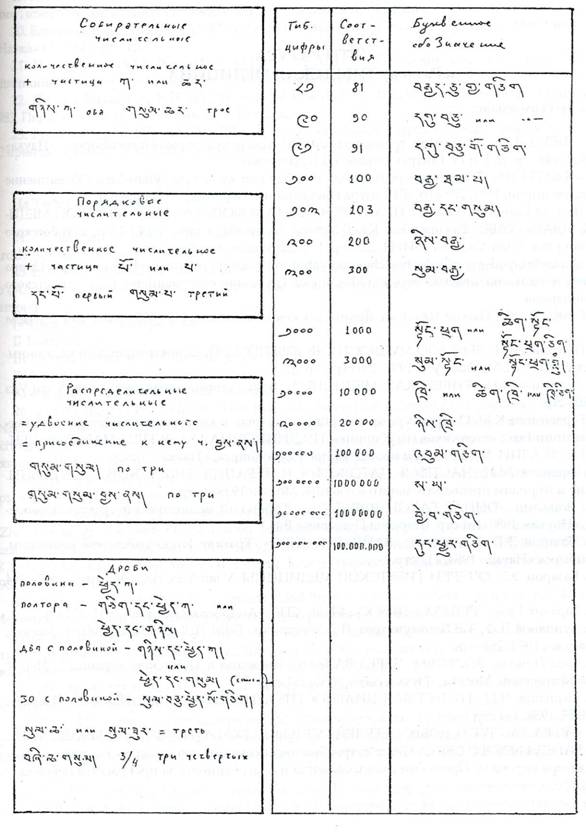 Собирательные
числительные
количественное числительное
+ частица ཀ་ или ཆར་
གཉིས་ཀ་ оба གསུམ་ཆར་ трое
Порядковое
числительные
количественное числительное
+ частица པོ་ или པ་
དང་པོ་ первый གསུམ་པ་ третий
Распределительные
числительные
= удвоение числительного
= присоединение к нему ч. བྱས་ནས།
གསུམ་གསུམ། по три
གསུམ་གསུམ་བྱས་ནས། по три
Дроби
половина - ཕྱེད་ཀ་
полтора - གཅིག་དང་ཕྱེད་ཀ་ или
ཕྱེད་དང་གཉིས།
два с половиной - གཉིས་དང་ཕྱེད་ཀ།
или
ཕྱེད་དང་གསུམ།
30 с половиной - སུམ་ཅུ་ཕྱེད་
སུམ་ཆ་ или = треть
བཞི་ཆ་གསུམ། 3/4 три четвертых
Тиб. цифры
Соответствия
Буквенное обозначение
༨༡ 81 བརྒྱད་ཅུ་གྱ་གཅིག
༩༠ 90 དགུ་བཅུ་ или
༩༡ 91 དགུ་བཅུ་གོ་གཅིག
༡༠༠ 100 བརྒྱ་ཐམ་པ།
༡༠༣ 103 བརྒྱ་དང་གསུམ།
༢༠༠ 200 ཉིས་བརྒྱ།
༣༠༠ 300 སུམ་བརྒྱ།
༡༠༠༠ 1000 སྟོང་ཕྲག་ или ཆིག་སྟོང་
སྟོང་ཕྲག་ཅིག
༣༠༠༠ 3000 སུམ་སྟོང་ или སྟོང་ཕྲག་
༡༠༠༠༠ 10000 ཁྲི་ или ཆིག་ཁྲི་ или ཁྲི་ཅིག
༢༠༠༠༠ 20000 ཉིས་ཁྲི་
༡༠༠༠༠༠ 100000 འབུམ་གཅིག
༡༠༠༠༠༠༠ 1000000 ས་ཡ་
༡༠༠༠༠༠༠༠ 10000000 བྱེ་བ་གཅིག
༡༠༠༠༠༠༠༠༠ 100.000.000 དུང་ཕྱུར་གཅིག